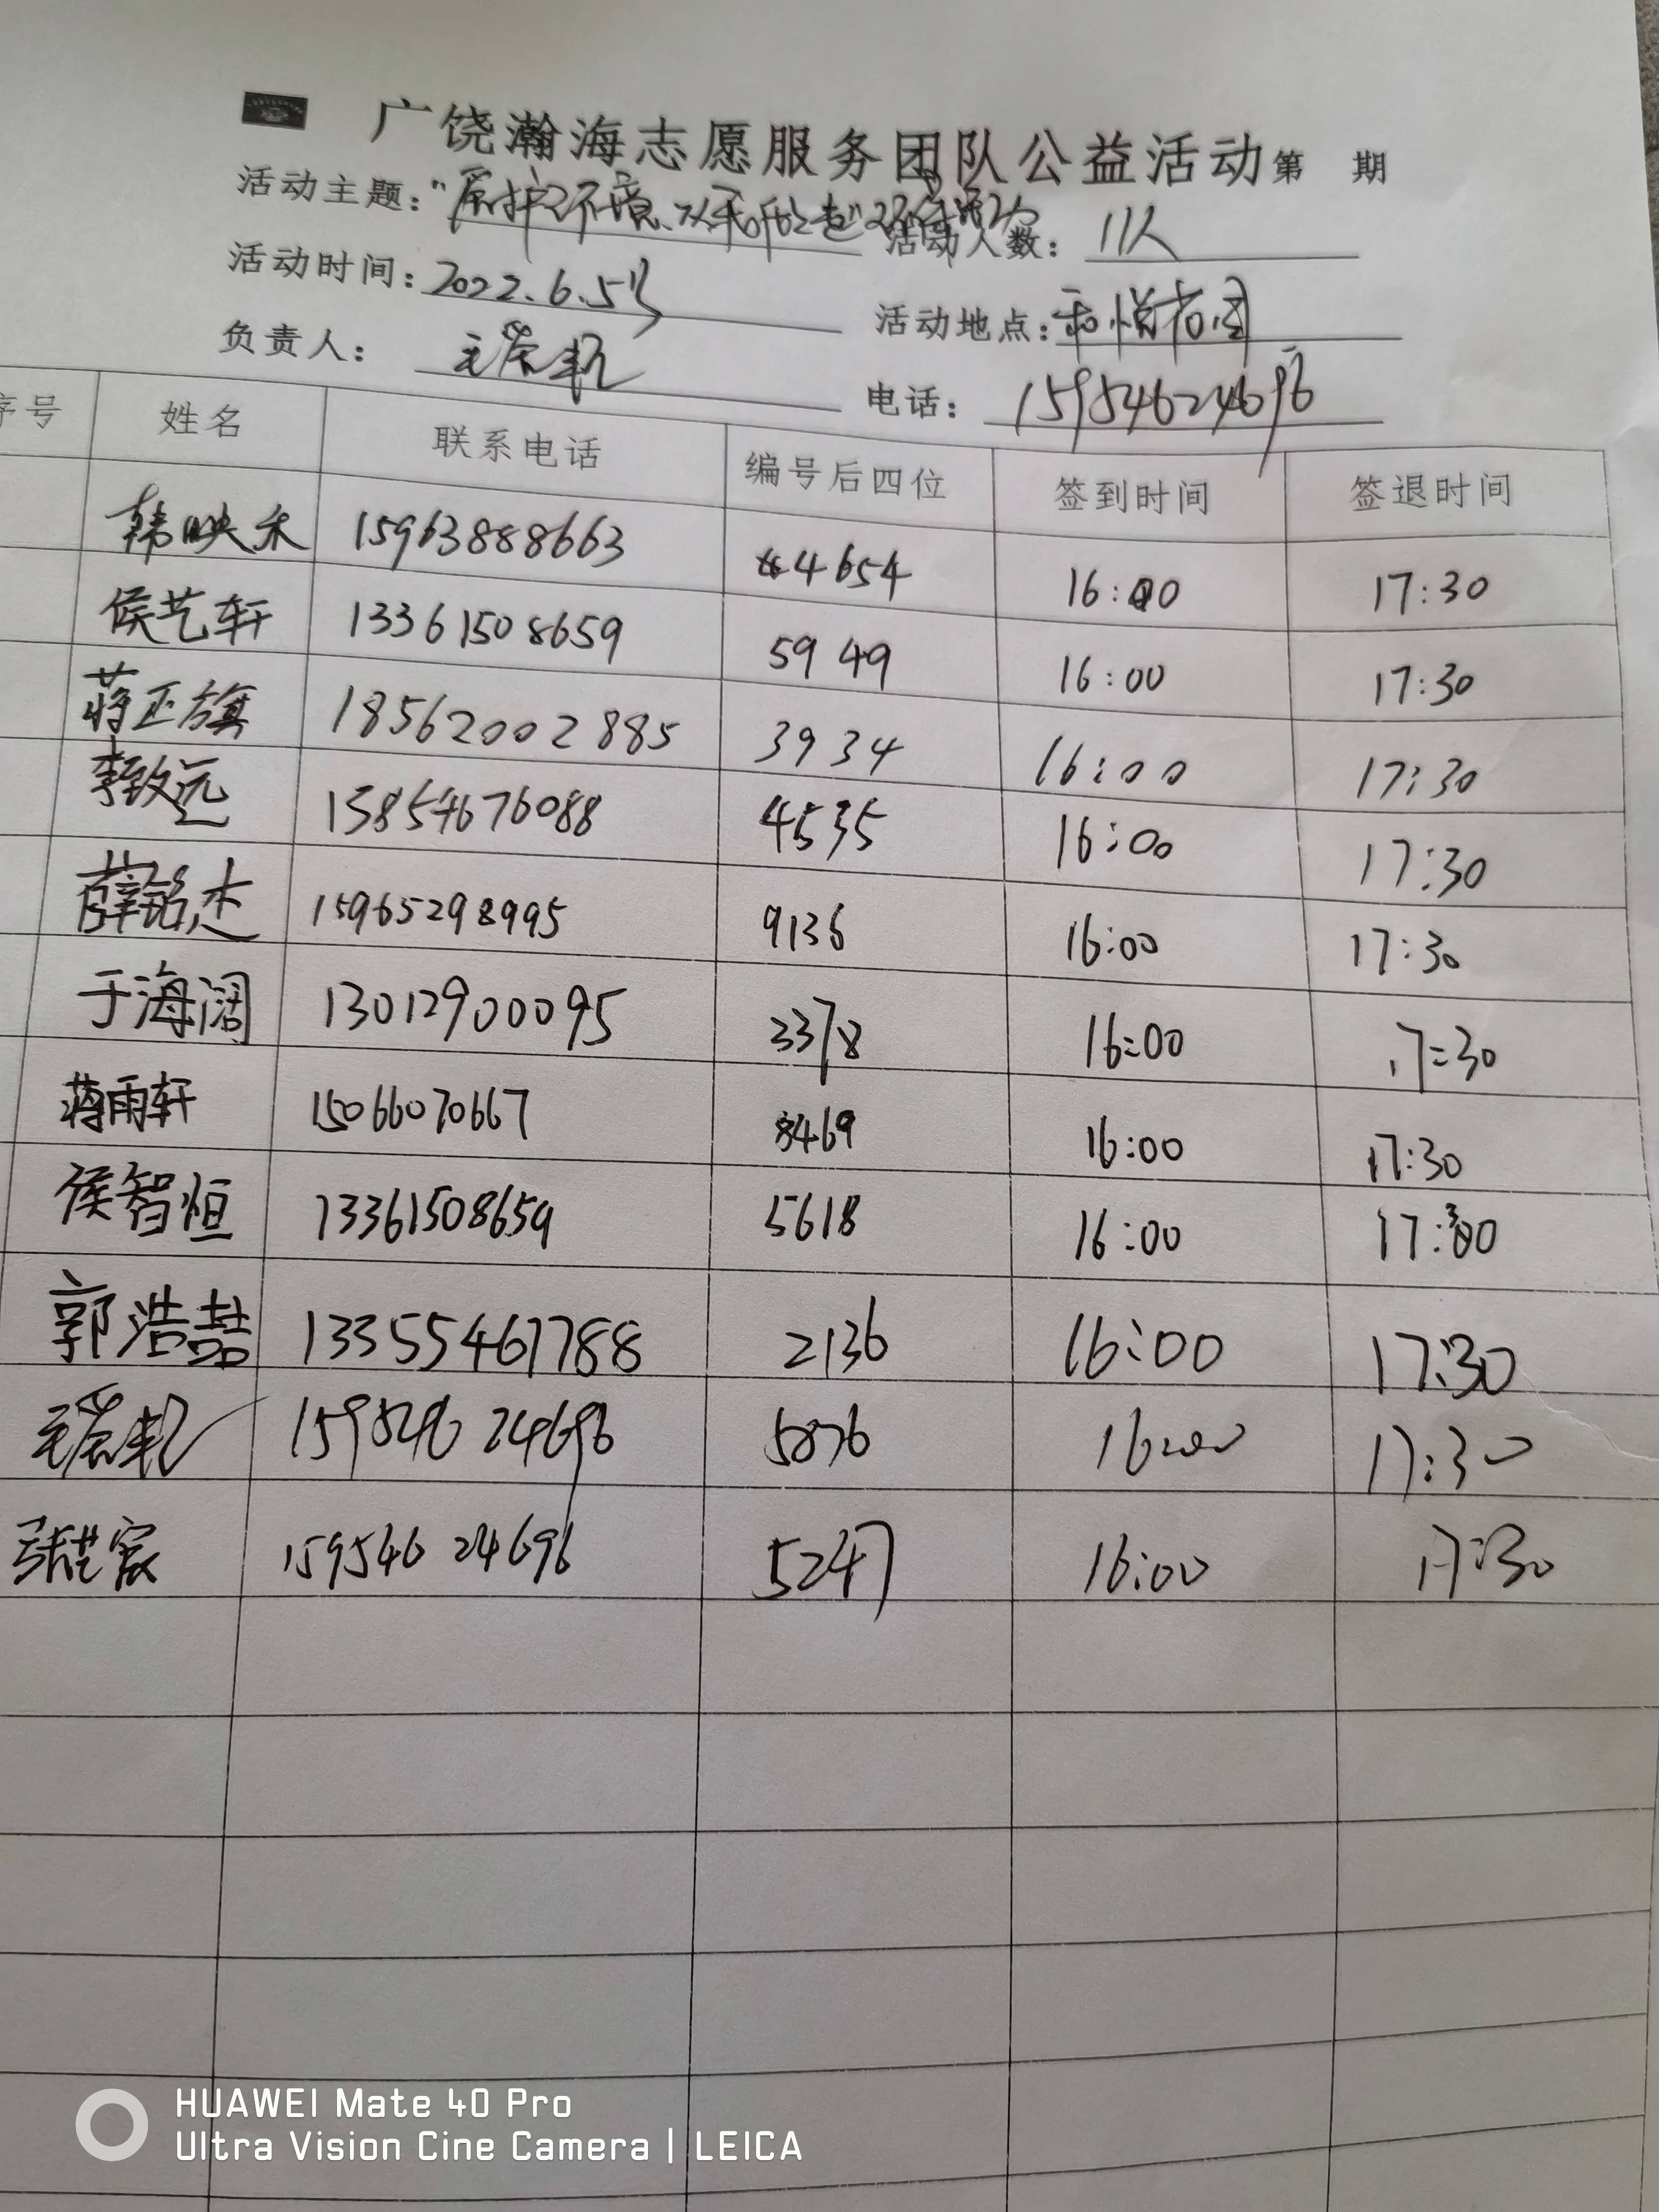 广饶瀚海志愿服务团队公益活动第 期
活动主题：“爱护环境、从我做起” 活动人数：11人
活动时间：2022.6.5 活动地点：和悦花园
负责人： 电话：15954624696
序号 姓名 联系电话 编号后四位 签到时间 签退时间
韩映禾 15963888663 4654 16:00 17:30
侯艺轩 13361508659 5949 16:00 17:30
蒋正旗 18562002885 3934 16:00 17:30
李致远 15854676088 4535 16:00 17:30
薛铭杰 15965298995 9136 16:00 17:30
于海阔 13012900095 3378 16:00 17:30
蒋雨轩 15066070667 8469 16:00 17:30
侯智恒 13361508659 5618 16:00 17:30
郭浩喆 13355461788 2136 16:00 17:30
15954624696 5876 16:00 17:30
15954624696 5247 16:00 17:30
HUAWEI Mate 40 Pro
Ultra Vision Cine Camera | LEICA